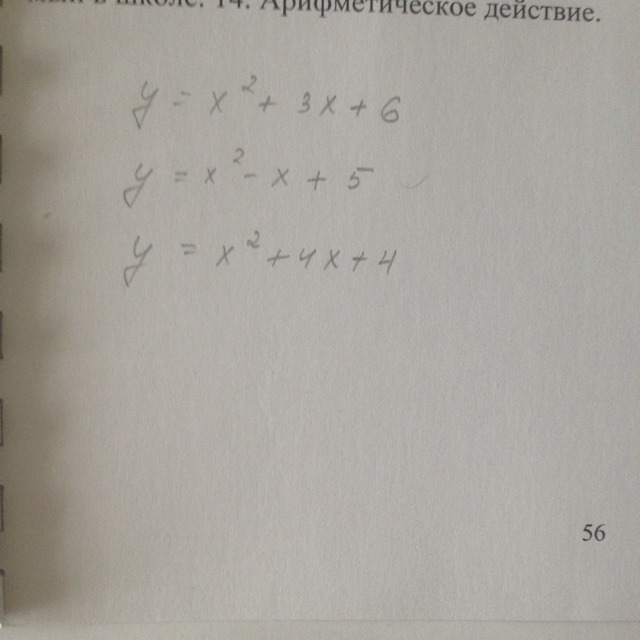 школе. 14. Арифметическое действие.
y = x² + 3x + 6
y = x² - x + 5
y = x² + 4x + 4
56